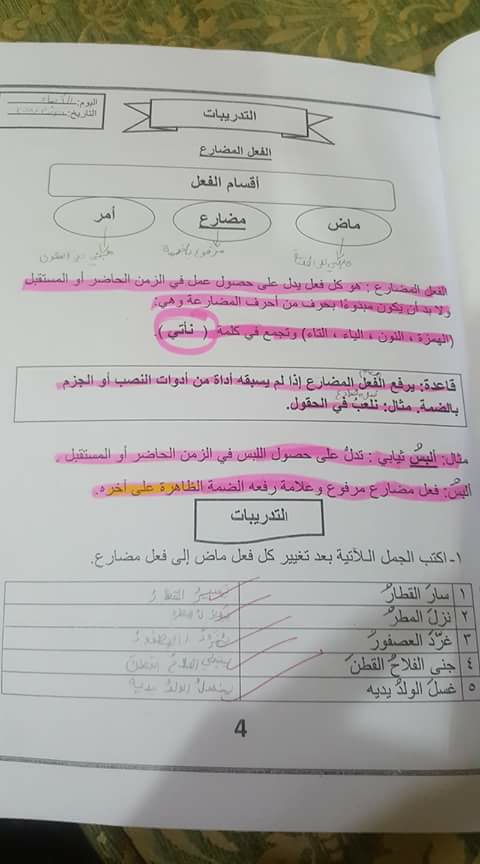 اليوم:
التاريخ:
التدريبات
الفعل المضارع
أقسام الفعل
ماض
مضارع
أمر
الفعل المضارع : هو كل فعل يدل على حصول عمل في الزمن الحاضر أو المستقبل
ولا بد أن يكون مبدوءًا بحرف من أحرف المضارعة وهي:
(الهمزة ، النون ، الياء ، التاء) وتجمع في كلمة ( نأتي ).
قاعدة: يرفع الفعل المضارع إذا لم يسبقه أداة من أدوات النصب أو الجزم
بالضمة. مثال: نلعبُ في الحقول.
مثال: ألبسُ ثيابي : تدلُ على حصول اللبس في الزمن الحاضر أو المستقبل .
ألبسُ: فعل مضارع مرفوع وعلامة رفعه الضمة الظاهرة على أخره.
التدريبات
١- اكتب الجمل الآتية بعد تغيير كل فعل ماض إلى فعل مضارع.
١ سارَ القطارُ يسيرُ القطارُ
٢ نزلَ المطرُ
٣ غرَّدَ العصفورُ
٤ جنى الفلاحُ القطنَ يجني الفلاحُ القطنَ
٥ غسلَ الولدُ يديه يغسلُ الولدُ يديه
4